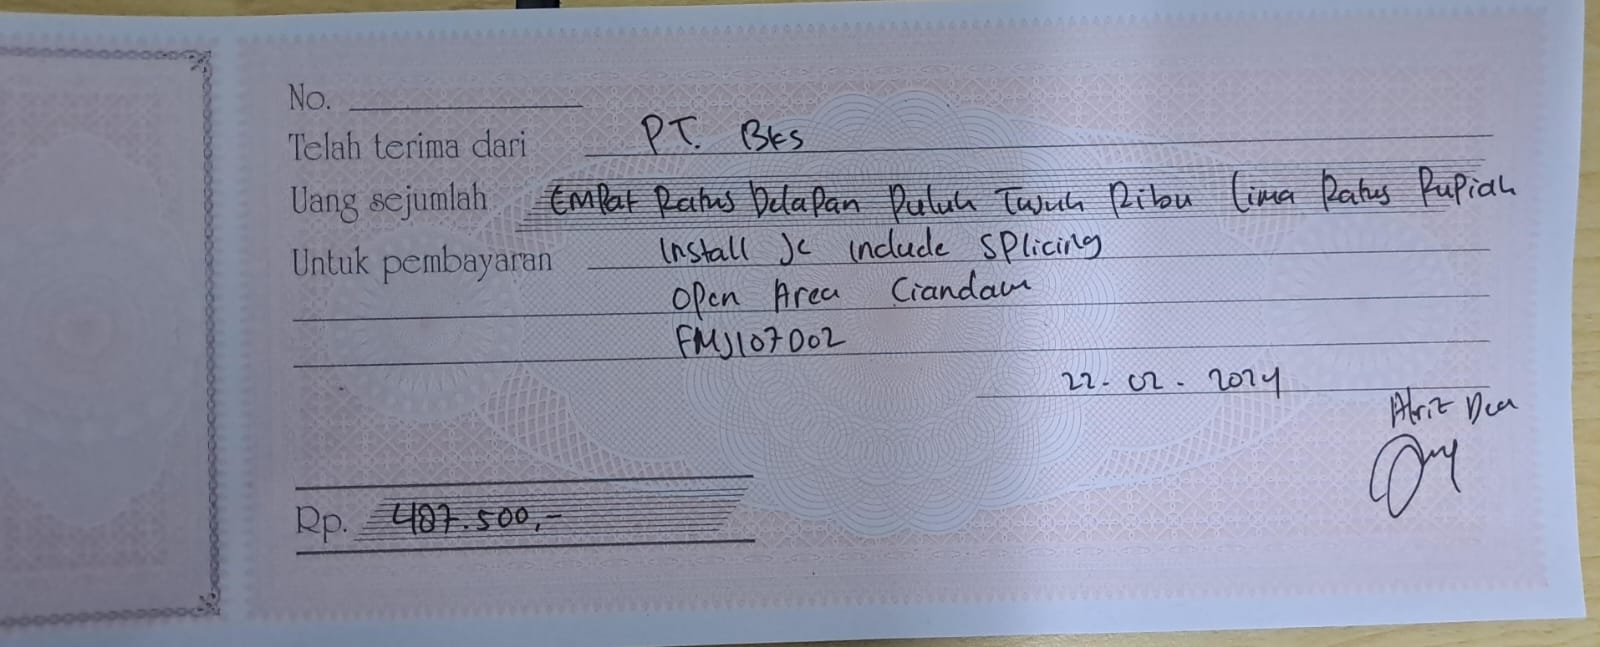 No.
Telah terima dari PT. BKS
Uang sejumlah Empat Ratus Delapan Puluh Tujuh Ribu Lima Ratus Rupiah
Untuk pembayaran Install JC include Splicing
Open Area
FMJ107D02
22-02-2024
Rp. 487.500,-